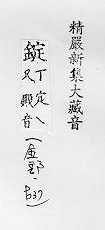 精嚴新集大藏音
錠
丁定乀
又殿音